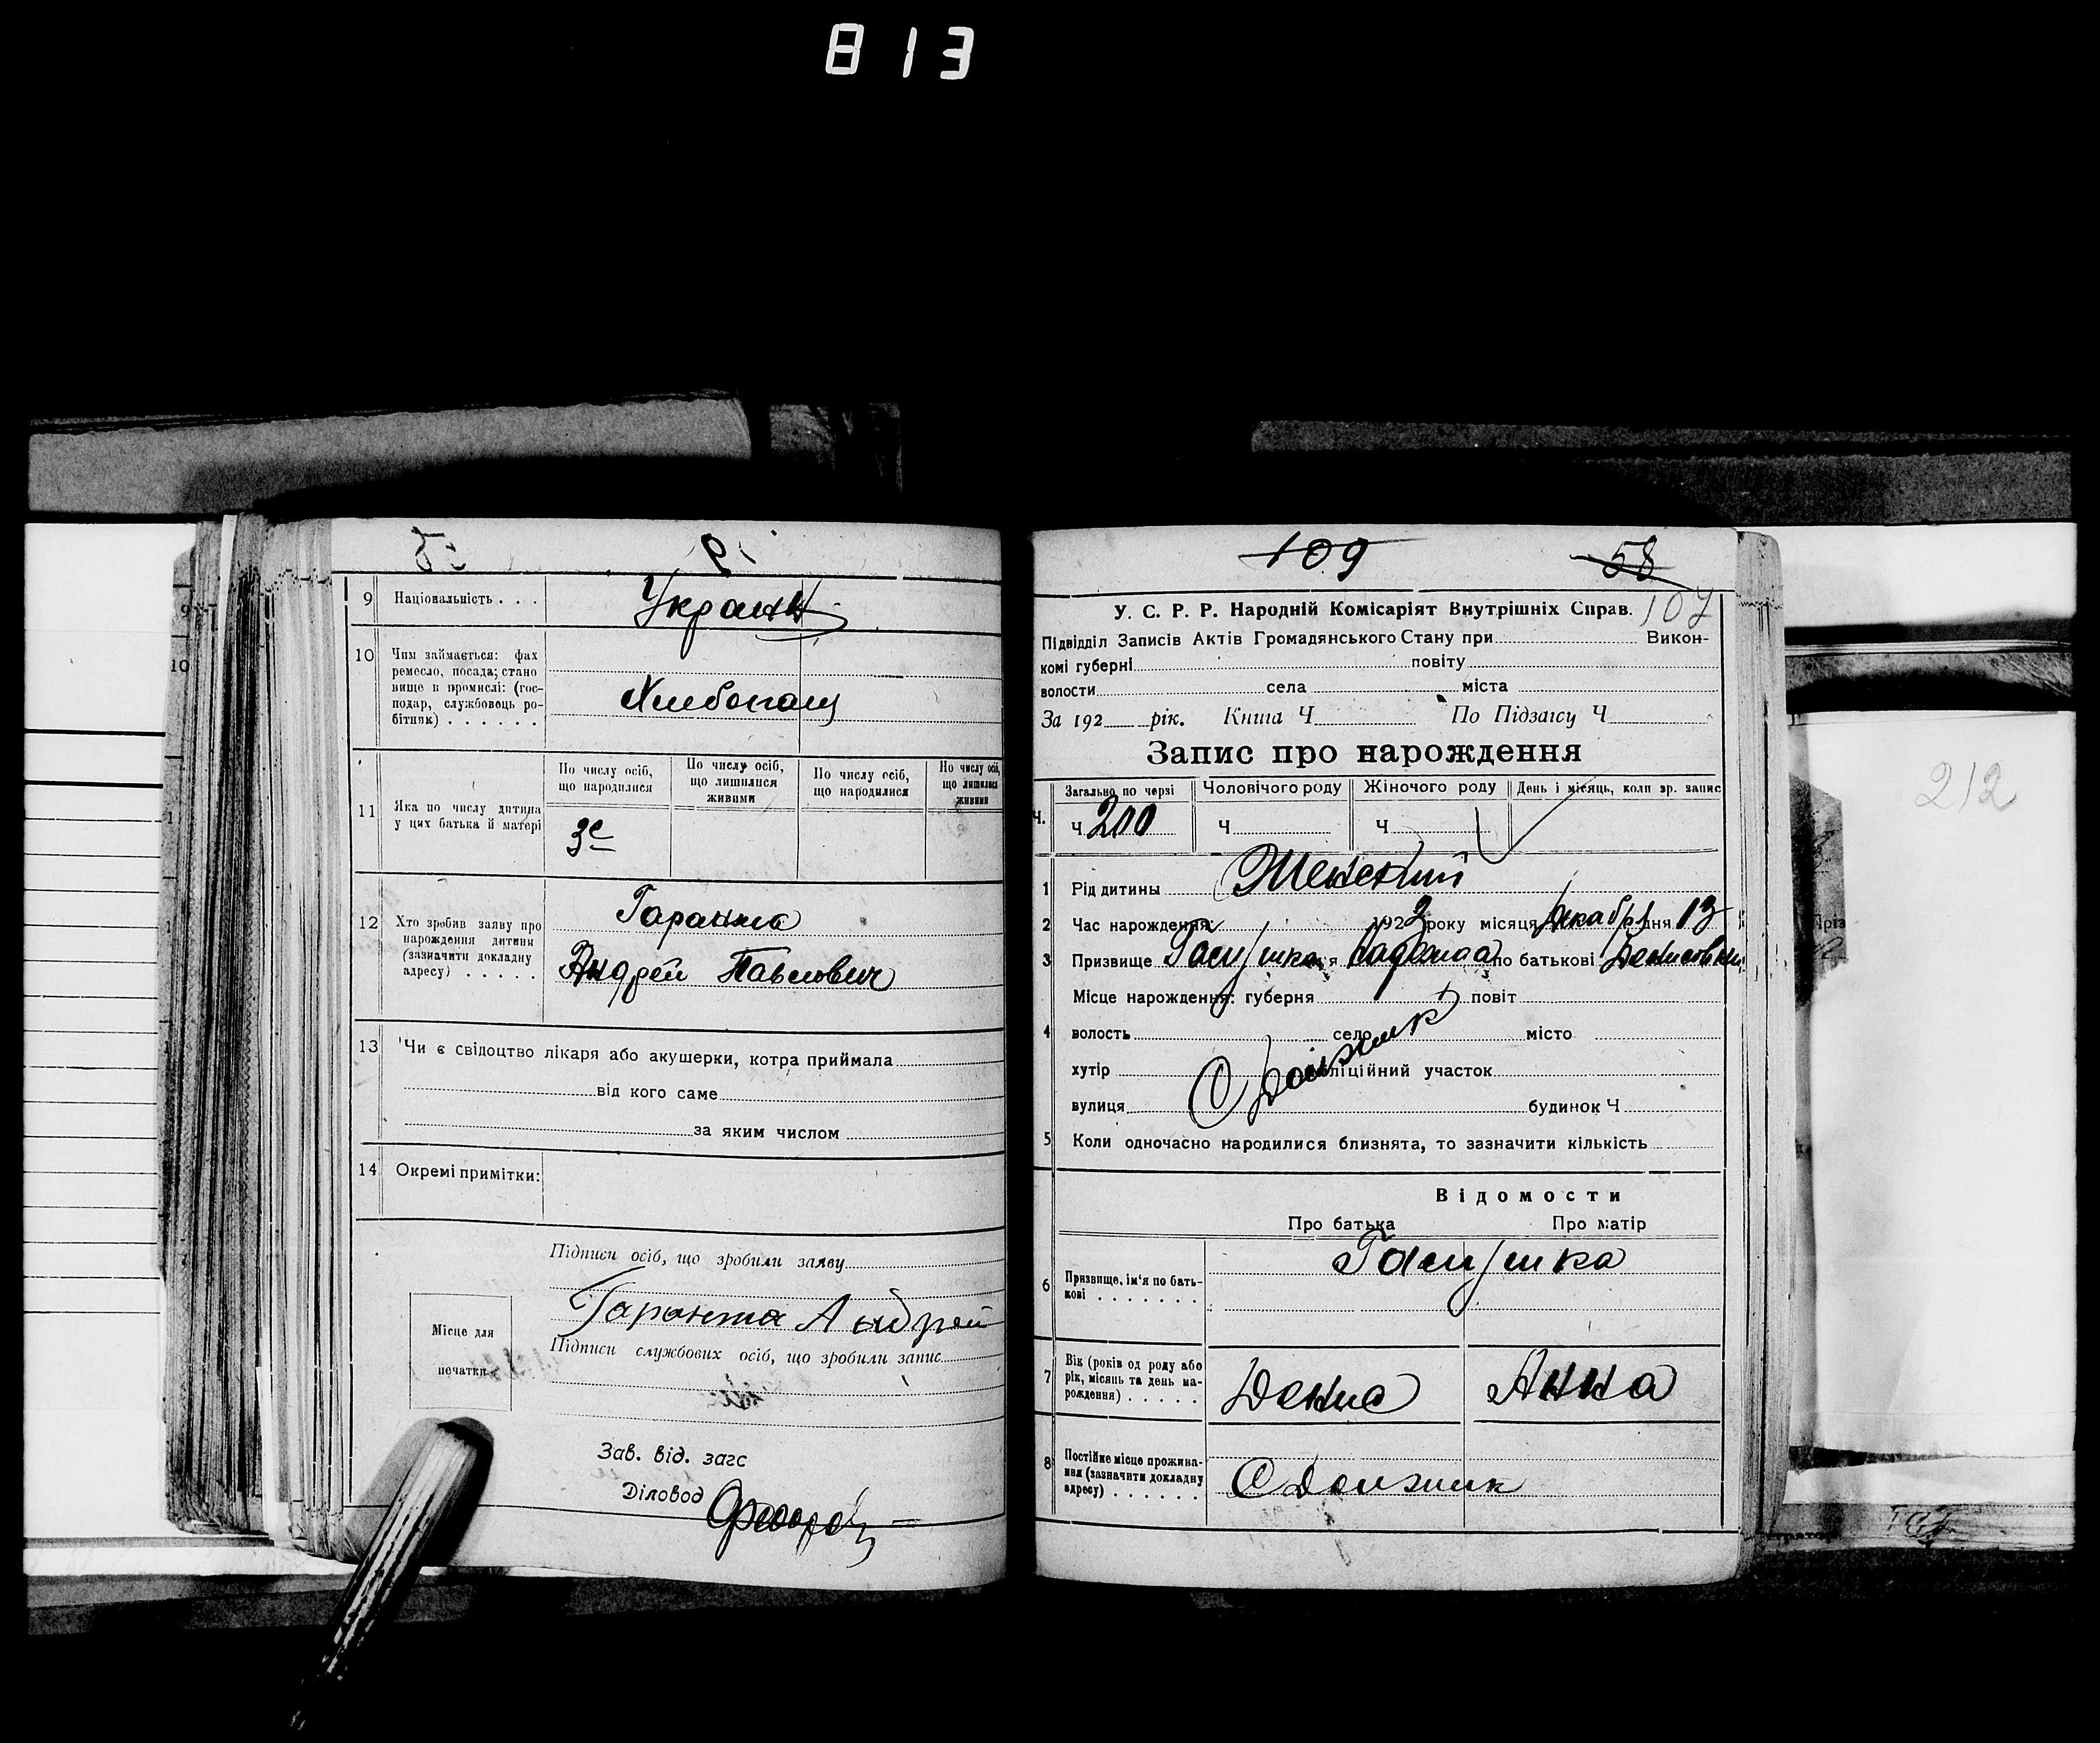 813
9 Національність . . . Украин
10 Чим займається: фах
ремесло, посада; стано
вище в промислі: (гос-
подар, службовець ро-
бітник) . . . . . .
Хлебопащ
11 Яка по числу дитина
у цих батька й матері
По числу осіб,
що народилися
По числу осіб,
що лишилися
живими
По числу осіб,
що народилися
По числу осіб,
що лишилися
живими
3е
12 Хто зробив заяву про
нарождення дитини
(зазначити докладну
адресу) . . . . .
Гаранжа
Андрей Павлович
13 Чи є свідоцтво лікаря або акушерки, котра приймала
від кого саме
за яким числом
14 Окремі примітки:
Підписи осіб, що зробили заяву
Гаранжа Андрей
Місце для
печатки
Підписи службових осіб, що зробили запис
Зав. від. загс
Діловод
109 58
У. С. Р. Р. Народній Комісаріят Внутрішніх Справ. 107
Підвідділ Записів Актів Громадянського Стану при Викон-
комі губерні повіту
волости села міста
За 192 рік. Книга Ч По Підзагсу Ч
Запис про нарождення
Ч.
Загально по черзі
Чоловічого роду
Жіночого роду
День і місяць, коли зр. запис
Ч 200 Ч Ч
1 Рід дитины Женский
2 Час нарождення: 1922 року місяця Декабр дня 13
3 Призвище по батькові
4 Місце нарождення: губерня повіт
волость село місто
хутір поліційний участок
вулиця будинок Ч
С Должик
5 Коли одночасно народилися близнята, то зазначити кількість
Відомости
Про батька Про матір
6 Призвище, ім'я по бать-
кові . . . . . . .
7 Вік (років од роду або
рік, місяць та день на-
рождення) . . . . .
Денис Анна
8 Постійне місце прожива-
ння (зазначити докладну
адресу) . . . . . .
С Должик
212